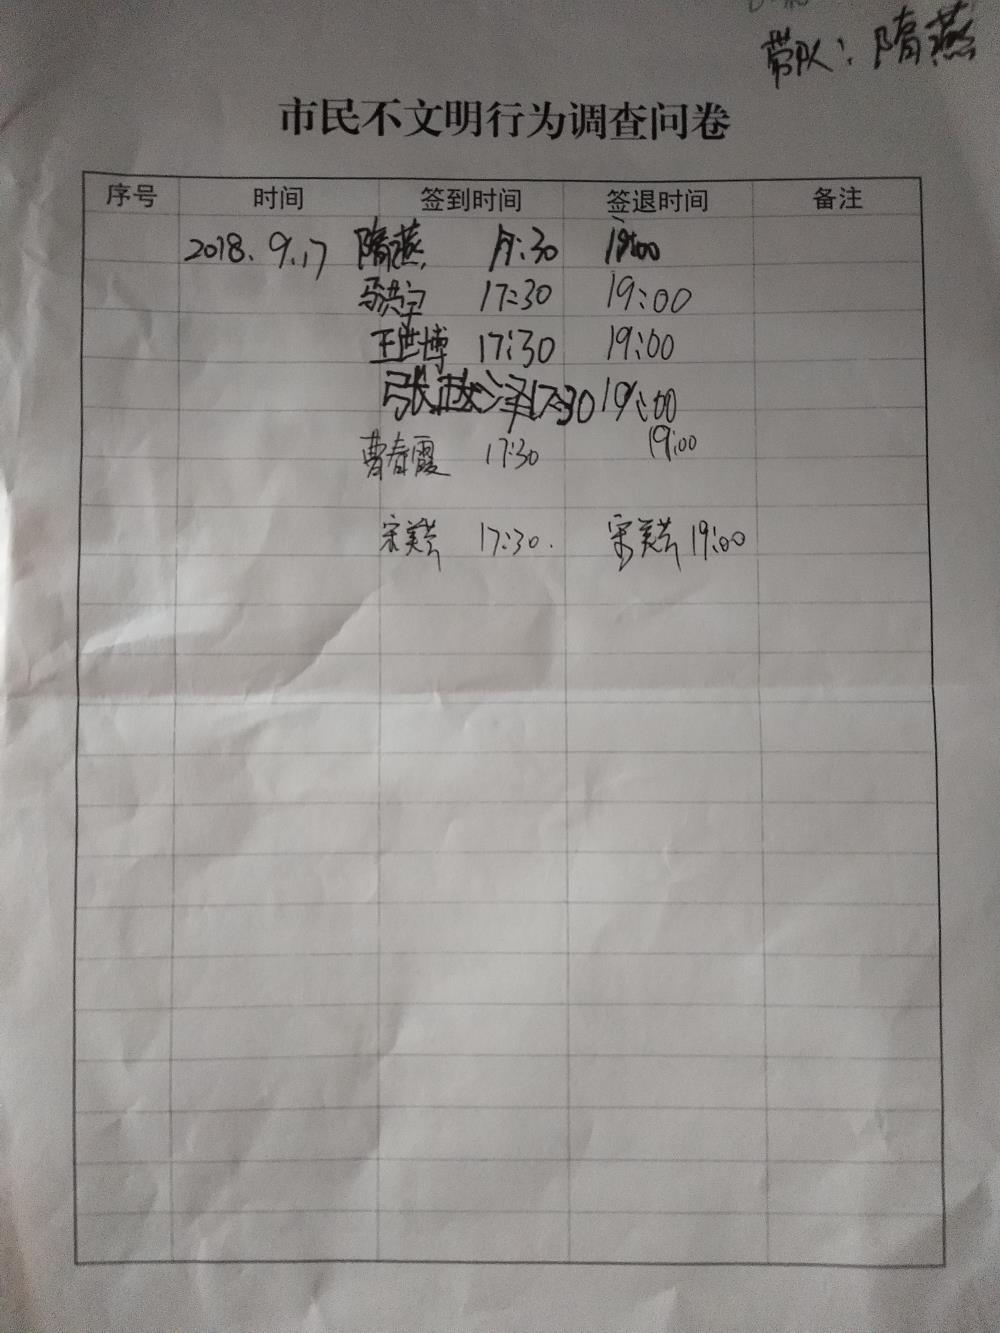 带队：隋燕
市民不文明行为调查问卷
序号 时间 签到时间 签退时间 备注
2018.9.17 隋燕 17:30 19:00
马洪宁 17:30 19:00
王世博 17:30 19:00
张越泽 17:30 19:00
曹春霞 17:30 19:00
宋美芸 17:30. 宋美芸 19:00